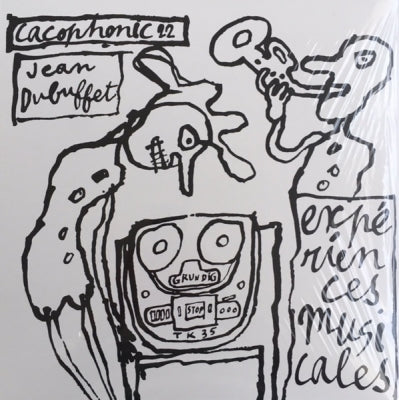 cacophonic 22
Jean
Dubuffet
GRUNDIG
STOP
TK 35
expé
rien
ces
musi
cales